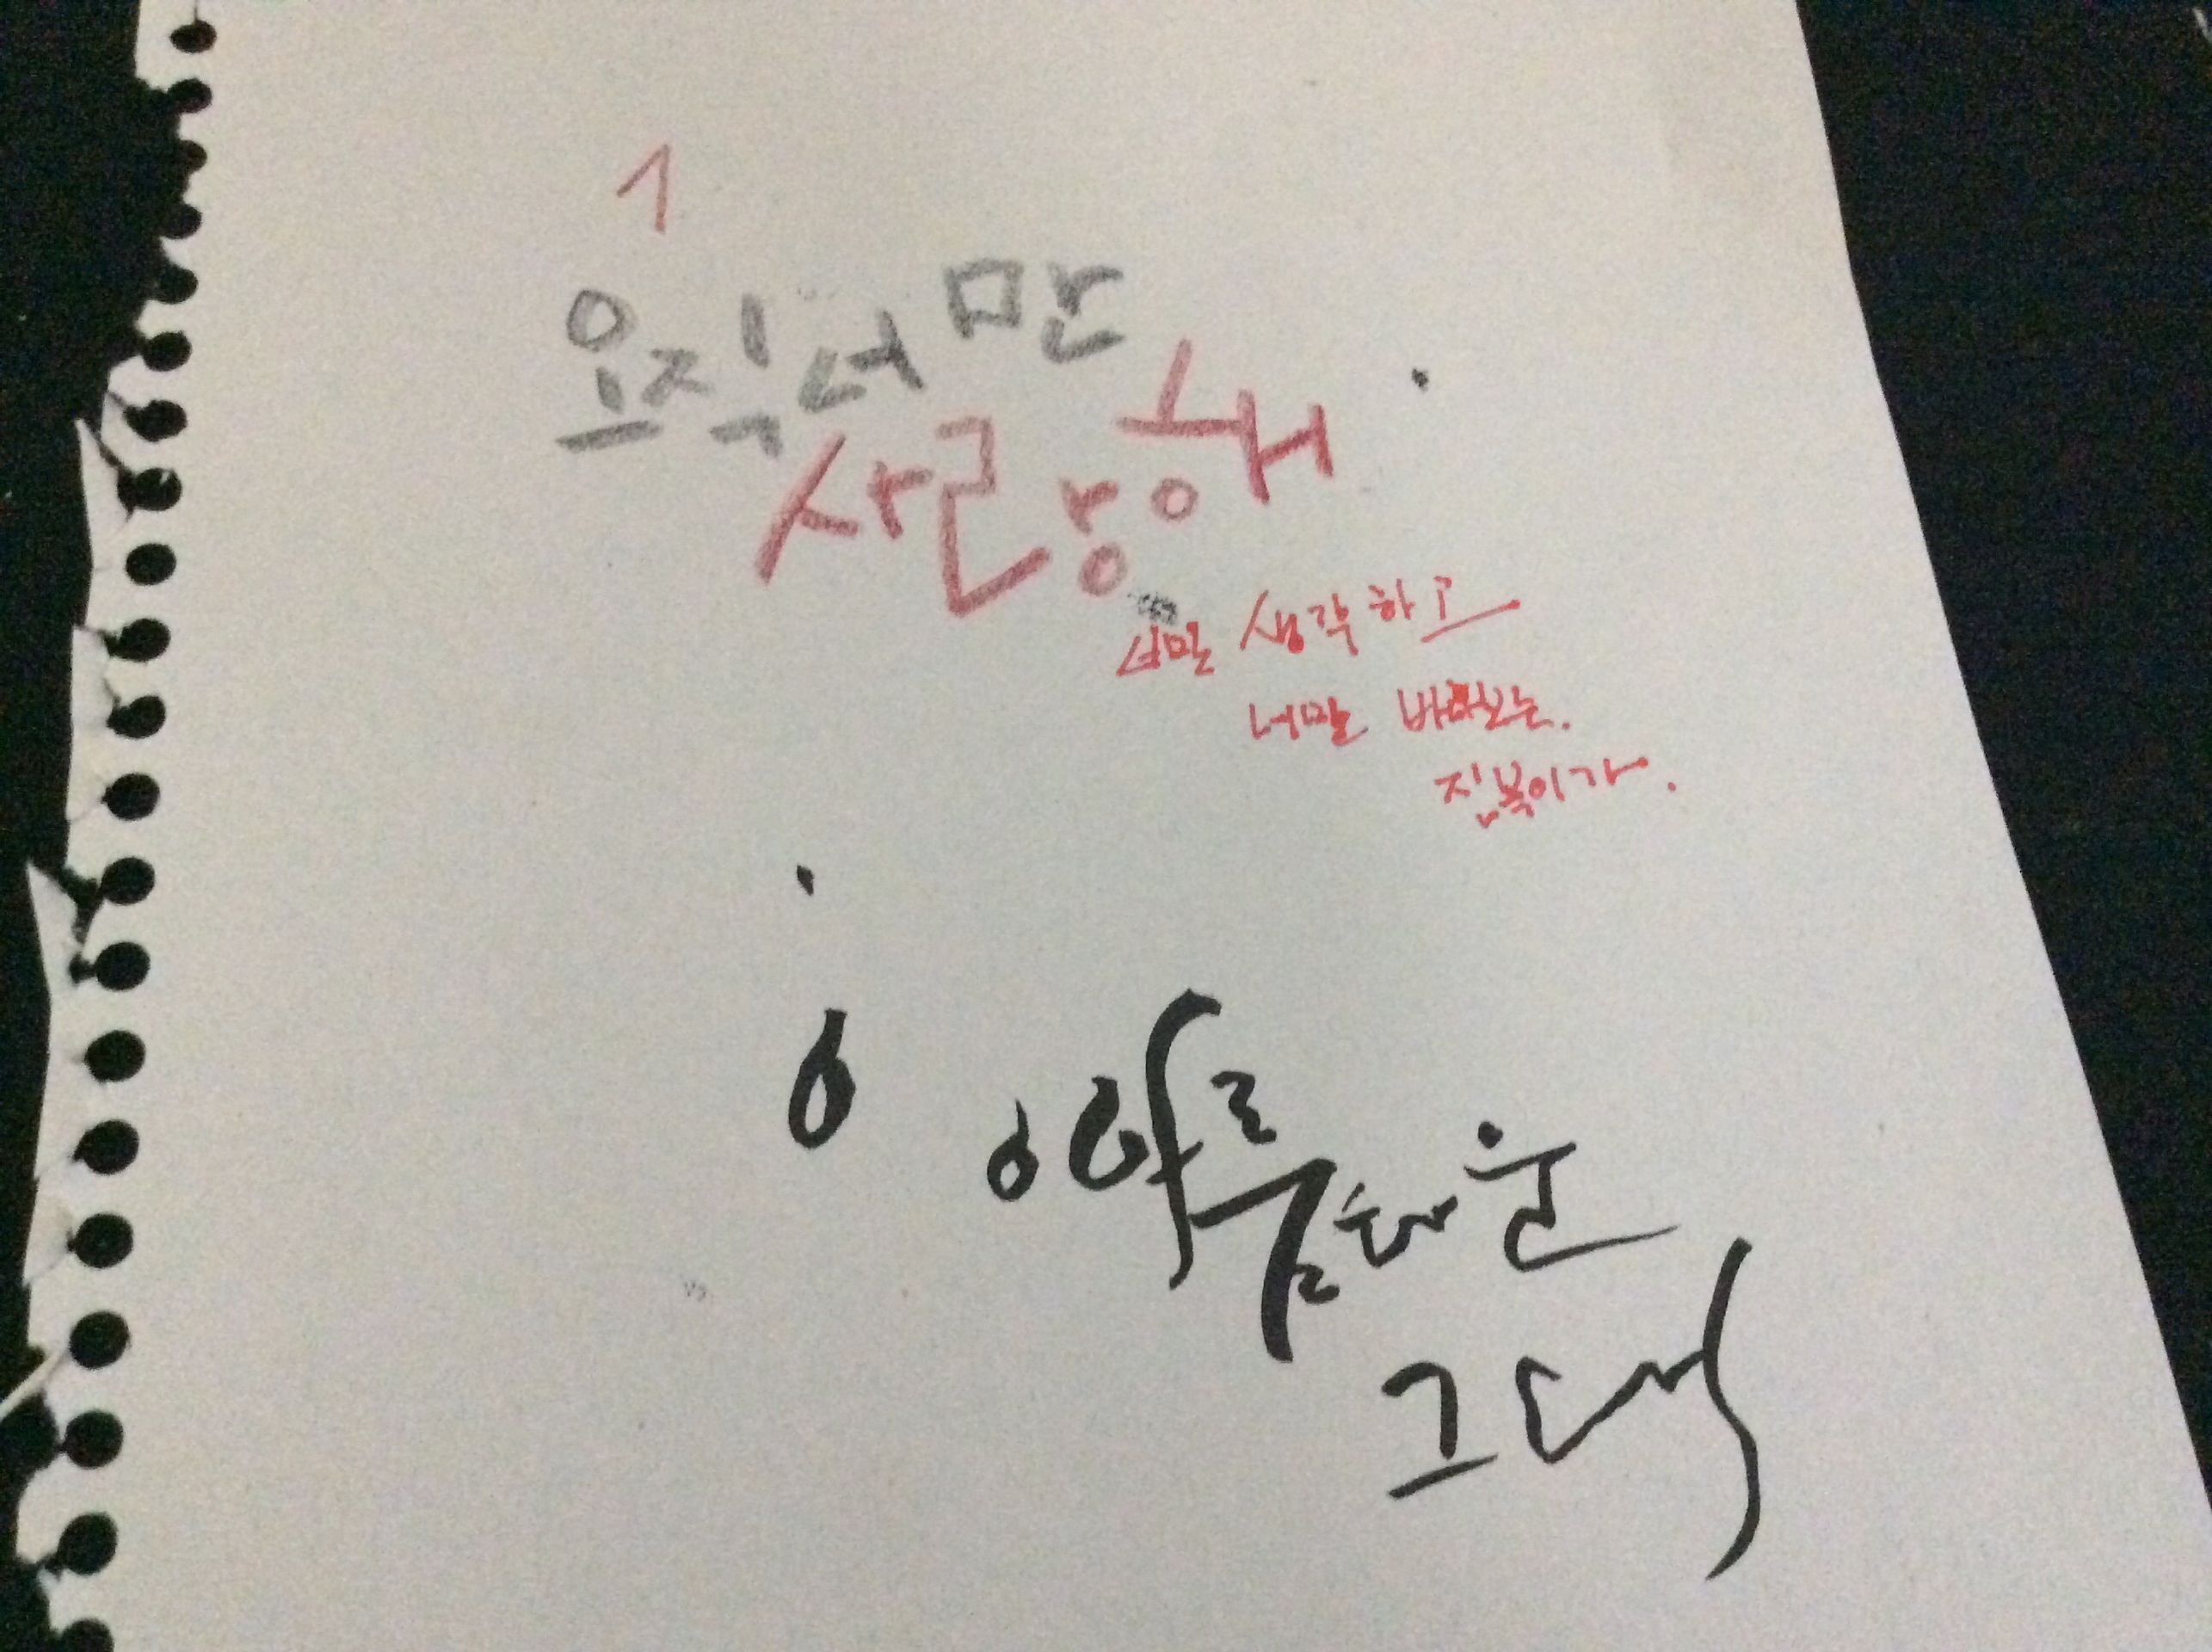 1
오직 너만
사랑해
너만 생각하고
너만 바라보는.
집복이가.
아름다운
그대